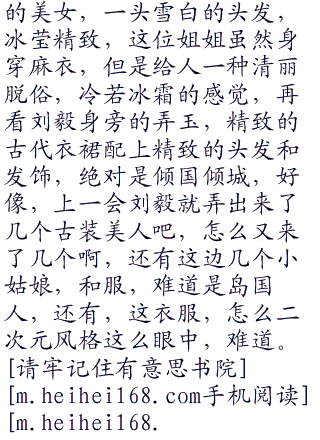 的美女，一头雪白的头发，
冰莹精致，这位姐姐虽然身
穿麻衣，但是给人一种清丽
脱俗，冷若冰霜的感觉，再
看刘毅身旁的弄玉，精致的
古代衣裙配上精致的头发和
发饰，绝对是倾国倾城，好
像，上一会刘毅就弄出来了
几个古装美人吧，怎么又来
了几个啊，还有这边几个小
姑娘，和服，难道是岛国
人，还有，这衣服，怎么二
次元风格这么眼中，难道。
[请牢记住有意思书院]
[m.heihei168.com手机阅读]
[m.heihei168.